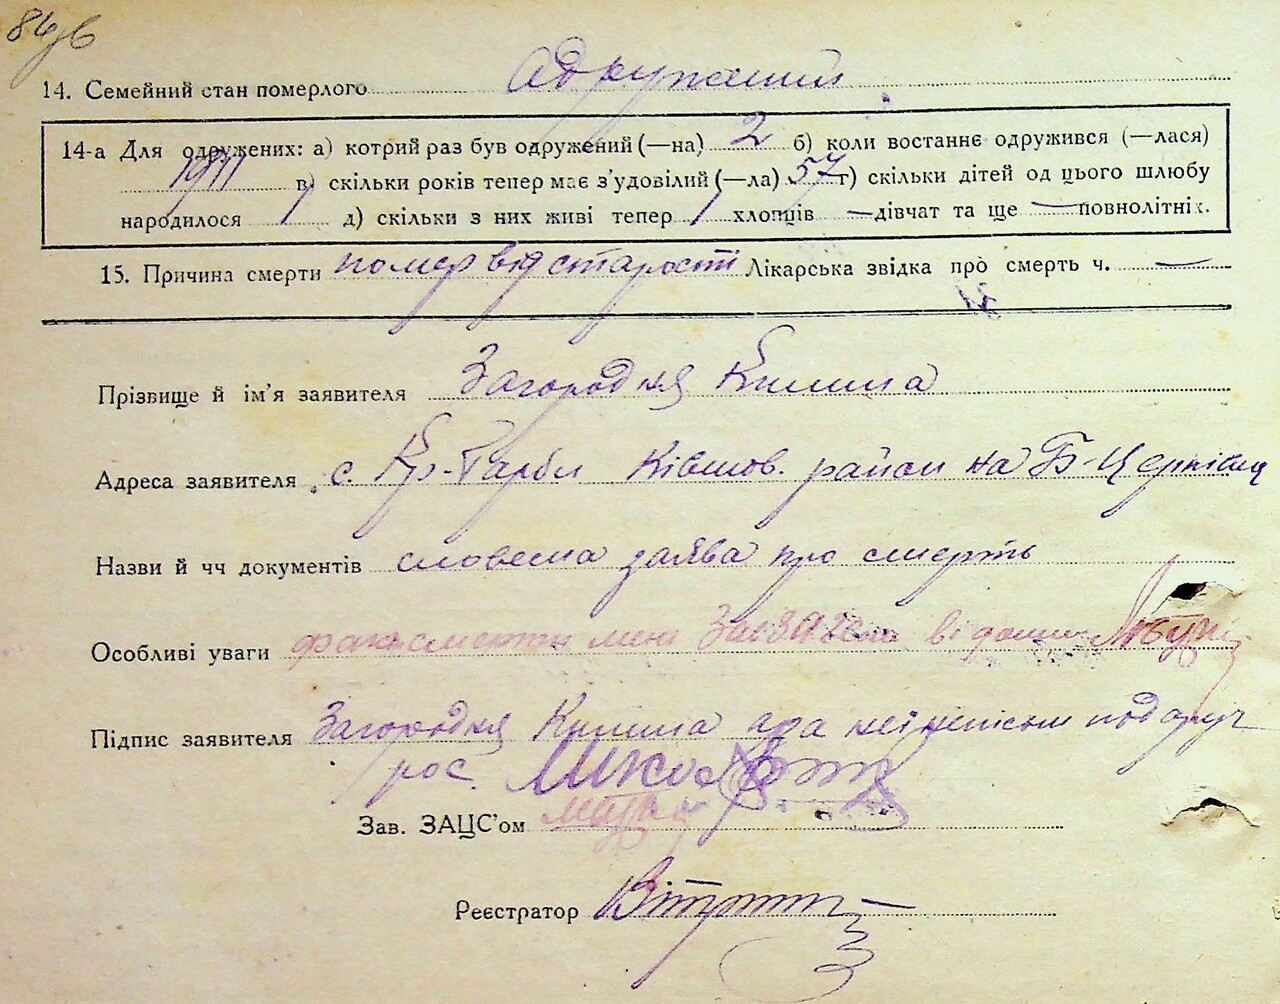 86зв
14. Семейний стан померлого адружаний
14-а Для одружених: а) котрий раз був одружений (—на) 2 б) коли востаннє одружився (—лася)
1911 в) скільки років тепер має з’удовілий (—ла) 57 г) скільки дітей од цього шлюбу
народилося 1 д) скільки з них живі тепер 1 хлопців — дівчат та ще — повнолітніх.
15. Причина смерти помер від старости Лікарська звідка про смерть ч. —
Прізвище й ім’я заявителя Загородня Килина
Адреса заявителя с. Кр-Гарбл Ківшов. района Б-Церківщ
Назви й чч документів словесна заява про смерть
Особливі уваги факт смерти мені
Підпис заявителя Загородня Килина а за неї неписьм
рос.
Зав. ЗАЦС’ом
Реєстратор